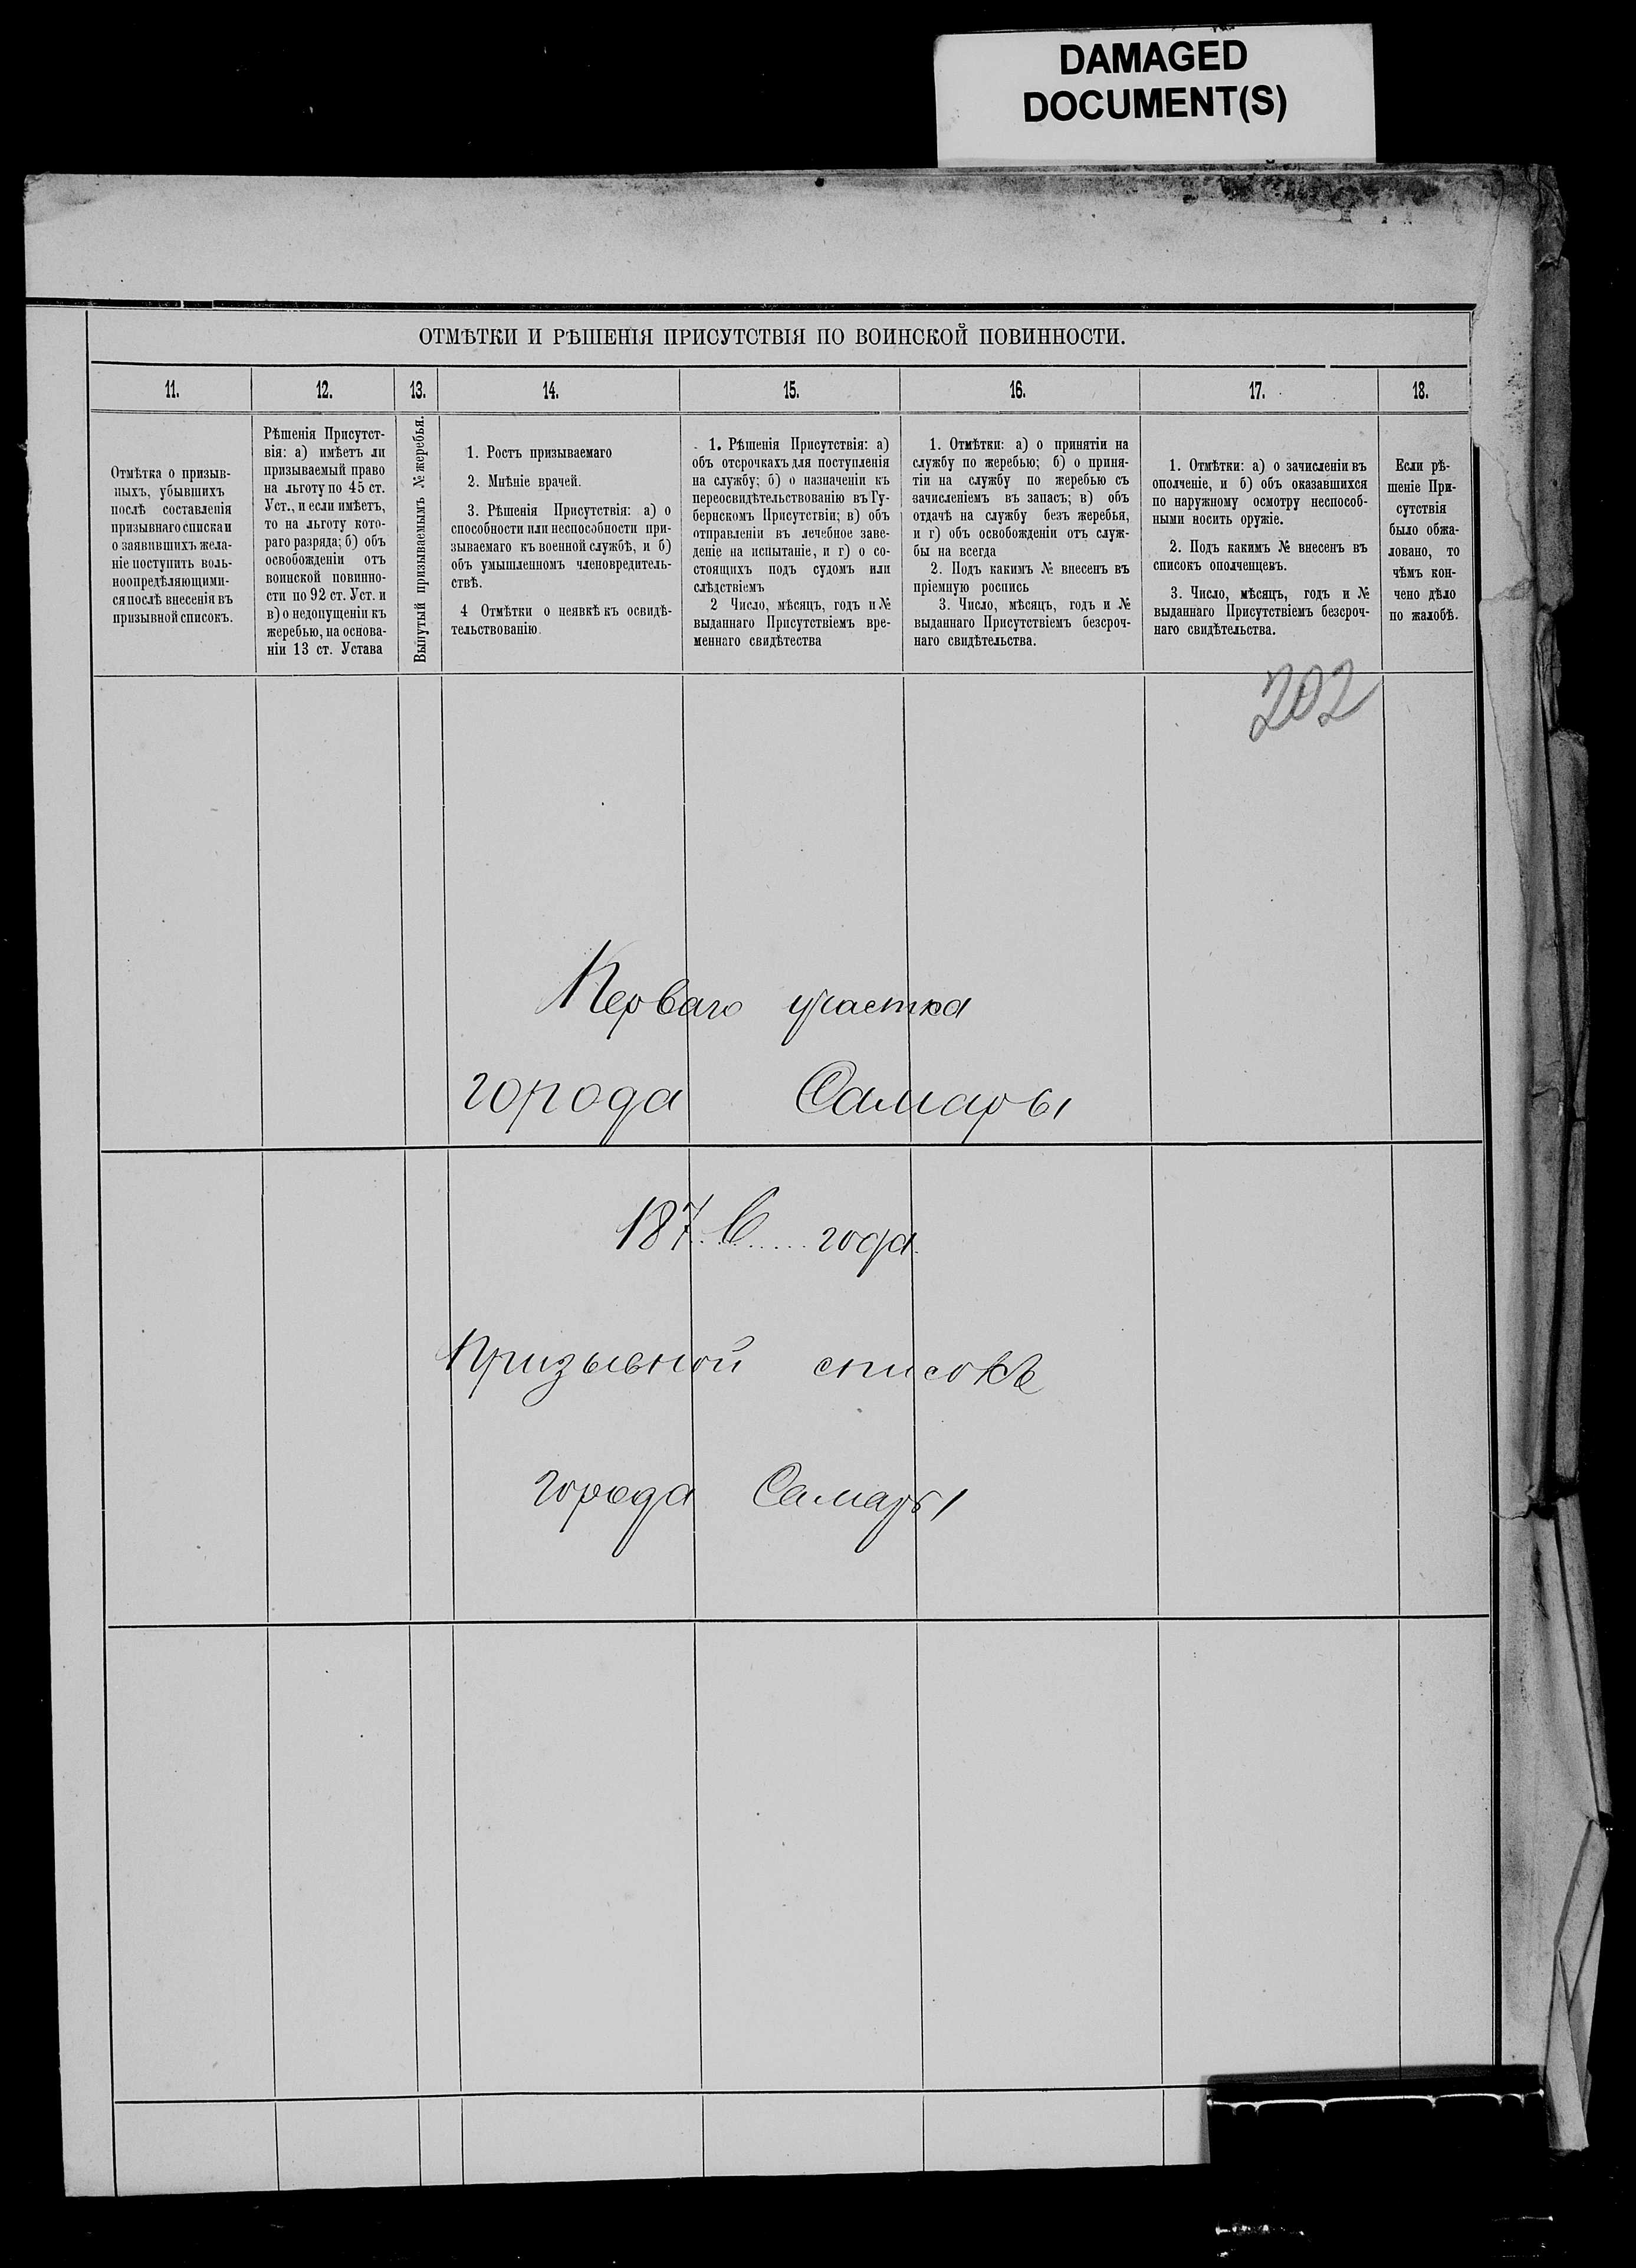 DAMAGED
DOCUMENT(S)
ОТМѢТКИ И РѢШЕНІЯ ПРИСУТСТВІЯ ПО ВОИНСКОЙ ПОВИННОСТИ.
11.
12.
13.
14.
15.
16.
17.
18.
Отмѣтка о призыв-
ныхъ, убывшихъ
послѣ составленія
призывнаго списка и
о заявившихъ жела-
ніе поступить воль-
ноопредѣляющими-
ся послѣ внесенія въ
призывной списокъ.
Рѣшенія Присутст-
вія: а) имѣетъ ли
призываемый право
на льготу по 45 ст.
Уст., и если имѣетъ,
то на льготу кото-
раго разряда; б) объ
освобожденіи отъ
воинской повинно-
сти по 92 ст. Уст. и
в) о недопущеніи къ
жеребью, на основа-
ніи 13 ст. Устава
Вынутый призываемымъ № жеребья.
1. Ростъ призываемаго
2. Мнѣніе врачей.
3. Рѣшенія Присутствія: а) о
способности или неспособности при-
зываемаго къ военной службѣ, и б)
объ умышленномъ членовредитель-
ствѣ.
4 Отмѣтки о неявкѣ къ освидѣ-
тельствованію.
1. Рѣшенія Присутствія: а)
объ отсрочкахъ для поступленія
на службу; б) о назначеніи къ
переосвидѣтельствованію въ Гу-
бернскомъ Присутствіи; в) объ
отправленіи въ лечебное заве-
деніе на испытаніе, и г) о со-
стоящихъ подъ судомъ или
слѣдствіемъ
2 Число, мѣсяцъ, годъ и №
выданнаго Присутствіемъ вре-
меннаго свидѣтества
1. Отмѣтки: а) о принятіи на
службу по жеребью; б) о приня-
тіи на службу по жеребью съ
зачисленіемъ въ запасъ; в) объ
отдачѣ на службу безъ жеребья,
и г) объ освобожденіи отъ служ-
бы на всегда
2. Подъ какимъ № внесенъ въ
пріемную роспись
3. Число, мѣсяцъ, годъ и №
выданнаго Присутствіемъ безсроч-
наго свидѣтельства.
1. Отмѣтки: а) о зачисленіи въ
ополченіе, и б) объ оказавшихся
по наружному осмотру неспособ-
ными носить оружіе.
2. Подъ какимъ № внесенъ въ
списокъ ополченцевъ.
3. Число, мѣсяцъ, годъ и №
выданнаго Присутствіемъ безсроч-
наго свидѣтельства.
Если рѣ-
шеніе При-
сутствія
было обжа-
ловано, то
чѣмъ кон-
чено дѣло
по жалобѣ.
202
Перваго участка
города Самары
187 6 года
Призывной списокъ
города Самары